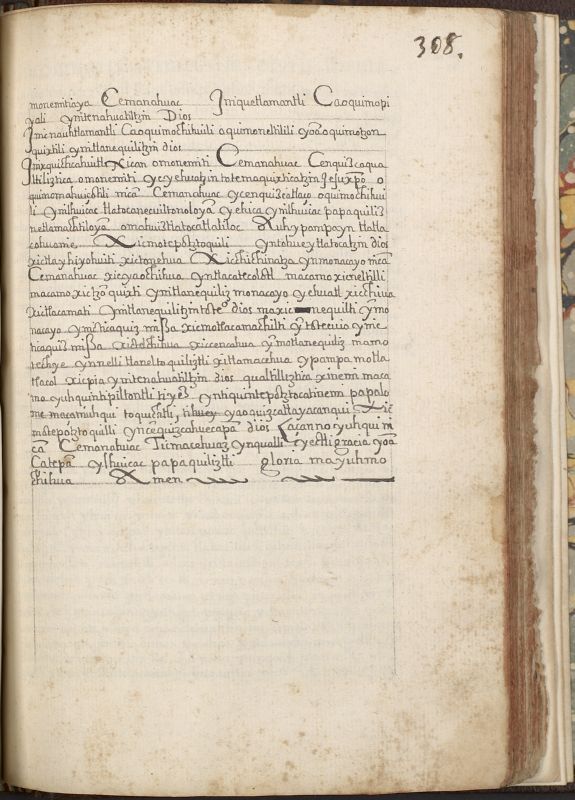 308.
monemitiaya Cemanahuac Jniquetlamantli Caoquimopi
yali ynitenahuatiltzin Dios
Jnicnauhtlamantli Caoquimochihuili oquimoneltilili yoã oquimotzon
quixtili ynitlanequilitzin dios
Jnixquichcahuitl Nican omonemiti Cemanahuac Cenquizcaqua
ltiliztica omonemiti ycyehuatzin totemaquixticatzin Jesuxpõ o
quinomahuiçotili nicã Cemanahuac ycenquizcatlaço oquimochihui
li ynilhuicac tlatocanecuiltonoloyã yehica ynilhuicac papaquiliz
netlamachtiloyã omahuiztlatocatlaliloc Auh ypampoyn tlatla
cohuanie Xicmotepotztoquili yntohueytlatocatzin dios
xictlayhiyohuiti xictonehua Xicchichinatza ynmonacayo nicã
Cemanahuac xicyaochihua yntlacatecolotl macamo xicneltilli
macamo xictzõquixti ynitlanequiliz monacayo yehuatl xicchiua
xictlacamati ynitlanequilitzin toteº dios maxic nequilti ynmo
nacayo ynichicaquiz missa xicmotlacamachilti yntotecuio ynic
ticaquiz missa xicchihua xiccencahua ynmotlanequiliz mamo
techye ynnelli tlaneltoquiliztli xitlamacehua ypampa motla
tlacol xicpia ynitenahuatiltzin dios qualtiliztica xinemi maca
mo yuhquintipiltontli tiyez ynihquintepotztocatinemi papalo
me macamuhqui toquichtli, tihuey yaoquizcatlayacanqui Xic
motepotztoquilli yncẽquizcahuecapã dios Caçanno yuhqui ni
cã Cemanahuac Ticmacehuaz ynqualli yectli gracia yoã
Catepã ylhuicac papaquiliztli gloria mayuhmo
chihua Amen